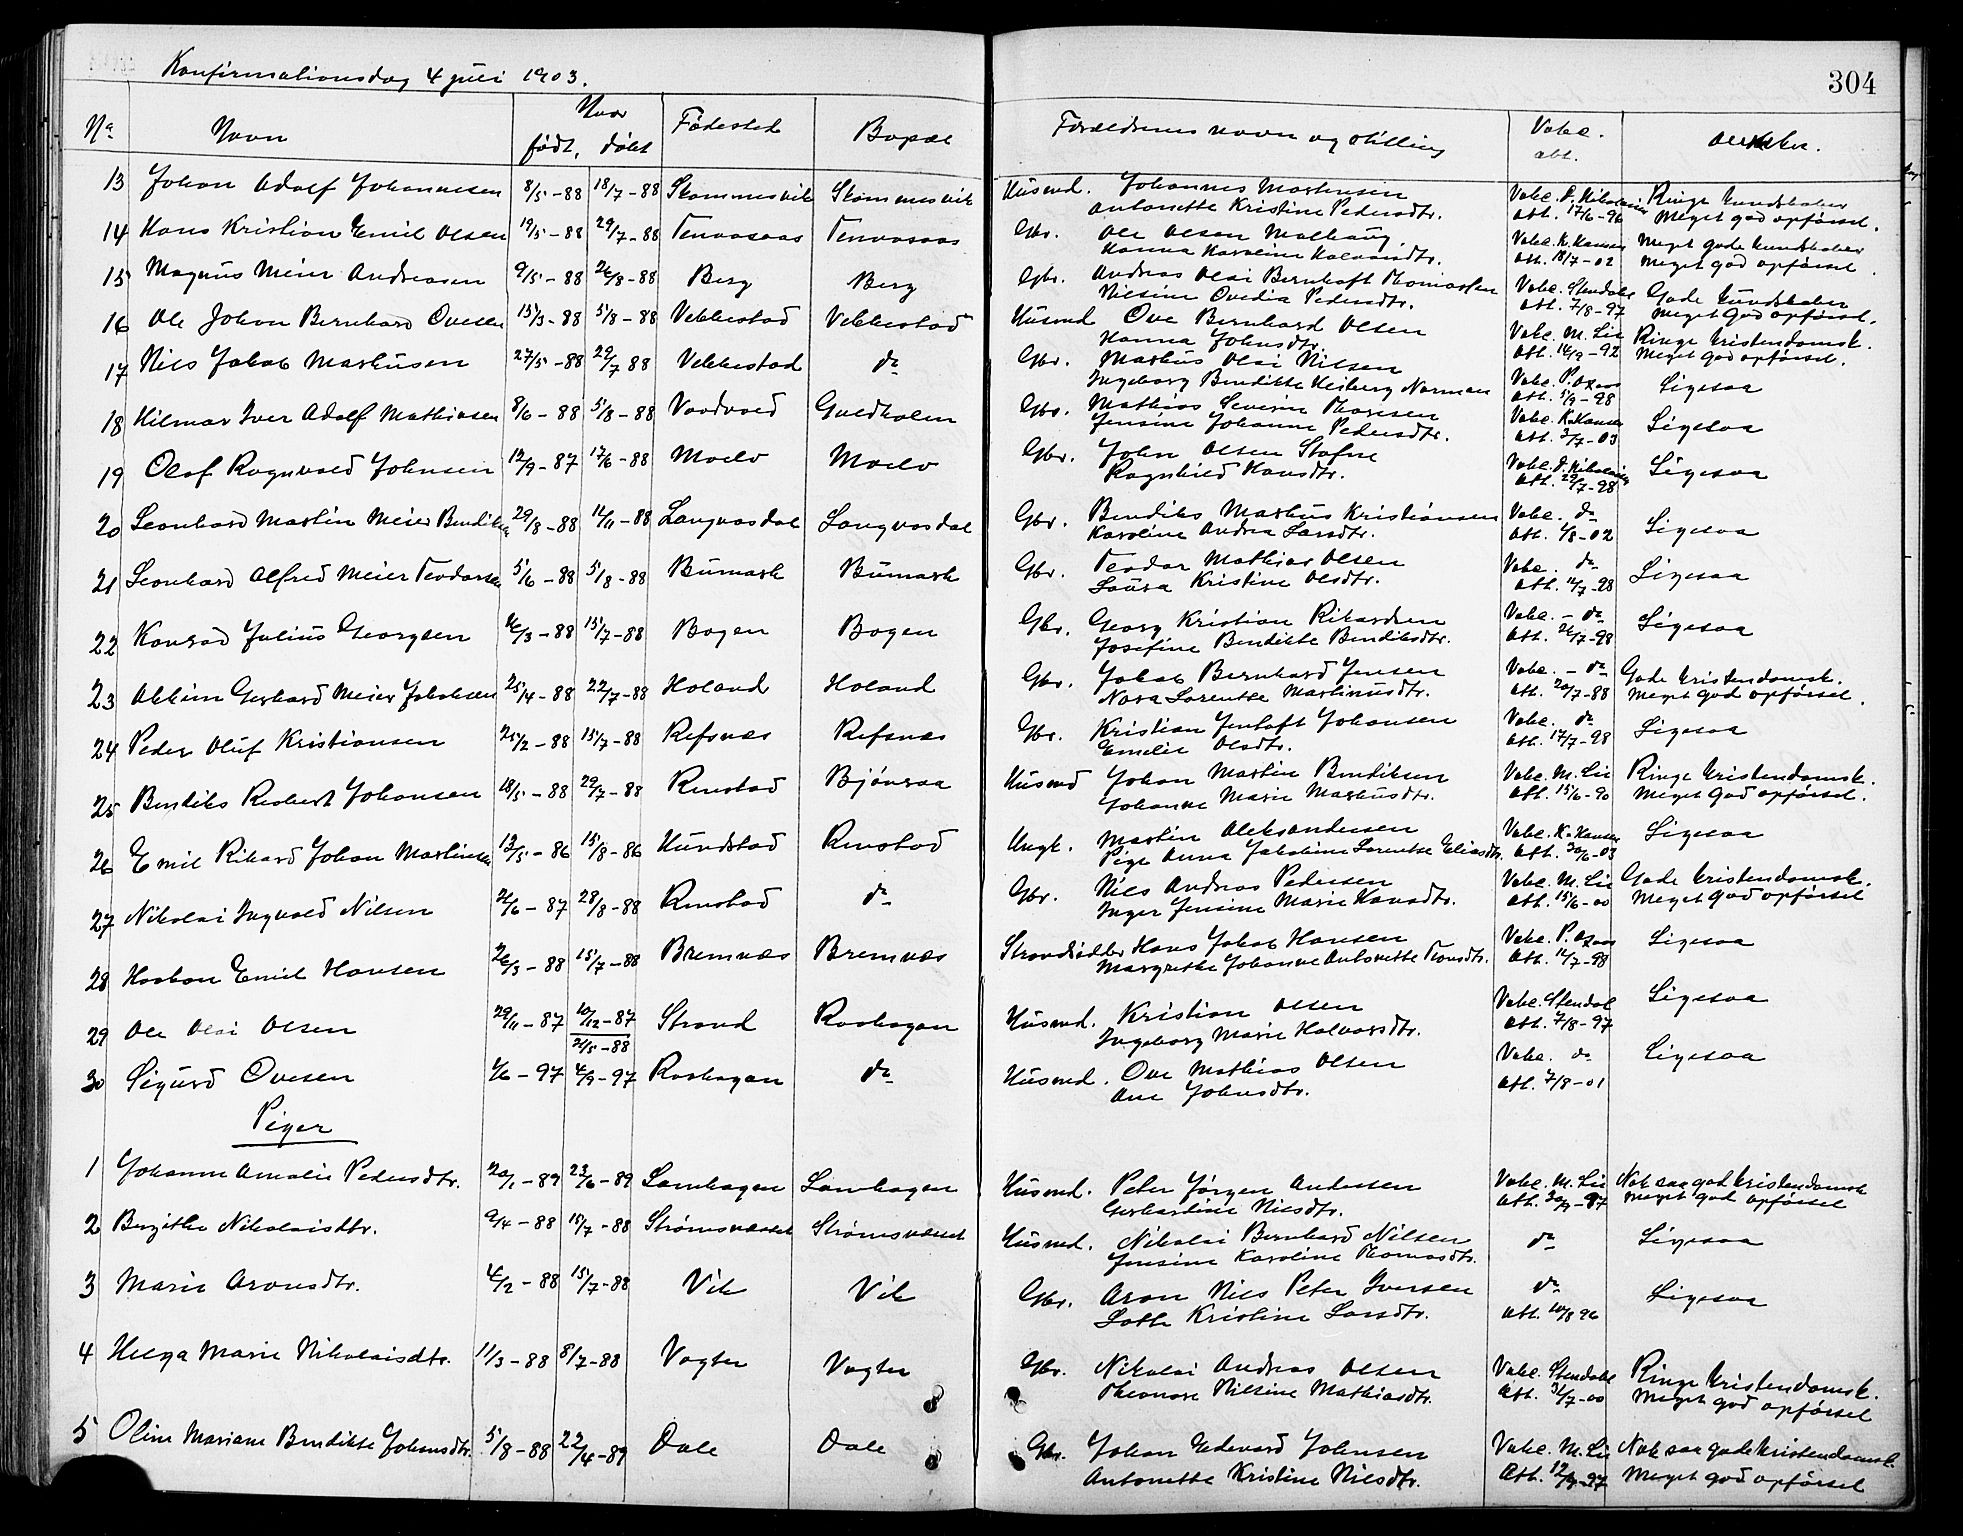 Konfirmationsdag 4 juli 1903.
304
No Navn Naar født, døbt Fødested Bopæl Forældrenes navn og stilling Vakc. att.
13 Johan Adolf Johannesen 8/5-88 18/7-88 Skommesvik Skommesvik Husmd. Johannes Martensen Vakc. D. Nikolaisen Ringe kundskaber
Antonette Kristine Pedersdtr. Att. 17/6-96 Meget god opførsel.
14 Hans Kristian Emil Olsen 19/5-88 29/7-88 Tennaasaas Tennaasaas Gbr. Ole Olsen Vakc. K. Hansen Meget gode kundskaber
Hanna Karoline Halvorsdtr. Att. 18/7-02 Meget god opførsel.
15 Magnus Meier Andreasen 9/5-88 26/8-88 Berg Berg Gbr. Andreas Olai Bernhoft Thomassen Vakc. Stendahl Gode kundskaber
Nilsine Ovedia Pedersdtr. Att. 7/8-97 Meget god opførsel.
16 Ole Johan Bernhard Ovesen 15/3-88 5/8-88 Vebbestad Vebbestad Husmd Ove Bernhard Olsen Vakc. M. Lie Ringe kristendomsk.
Hanna Johnsdtr. Att. 14/9-92 Meget god opførsel.
17 Nils Jakob Markusen 27/5-88 29/7 88 Vebbestad do Gbr. Markus Olai Nilsen Vakc. P. Oxaas Ligesaa
Ingeborg Bendikte Heiberg Norman Att. 5/9-98
18 Hilmar Iver Adolf Mathiasen 8/6-88 5/8-88 Vaadvold Guldholm Gbr. Mathias Severin Thoresen Vakc. K. Hansen Ligesaa
Jensine Johanne Pedersdtr. Att. 3/7-03
19 Olaf Ragnvald Johnsen 12/9-87 17/6-88 Moelv Moelv Gbr. John Olsen Stafne Vakc. D. Nikolaisen Ligesaa
Ragnhild Hansdtr. Att. 29/7-98
20 Leonhard Martin Meier Bendiksen 29/8-88 11/11-88 Langvasdal Langvasdal Gbr. Bendiks Markus Kristiansen Vakc. do Ligesaa
Karoline Andrea Larsdtr. Att. 1/8-02
21 Leonhard Alfred Meier Teodorsen 5/6-88 5/8-88 Bumark Bumark Gbr. Teodor Mathias Olsen Vakc. do Ligesaa
Laura Kristine Olsdtr. Att. 12/7-98
22 Konrad Julius Georgsen 16/3-88 15/7-88 Bogen Bogen Gbr. Georg Kristian Rikardsen Vakc. - do Ligesaa
Josefine Bendikte Bendiksdtr. Att. 26/7-98
23 Akkim Gerhard Meier Jakobsen 25/4-88 22/7-88 Holand Holand Gbr. Jakob Bernhard Jensen Vakc. - do Gode kristendomsk.
Nora Lorentse Martinusdtr. Att. 20/7-88 Meget god opførsel.
24 Peder Oluf Kristiansen 25/2-88 15/7-88 Refsnæs Refsnæs Gbr. Kristian Jentoft Johansen Vakc. do Ligesaa
Emelie Olsdtr. Att. 17/7-98
25 Bendiks Robert Johansen 18/5-88 29/7-88 Rinstad Bjørnraa Husmd Johan Martin Bendiksen Vakc. M. Lie Ringe kristendomsk.
Johanna Marie Markusdtr. Att. 15/6-90 Meget god opførsel.
26 Emil Rikard Johan Martinsen 13/5-86 15/8-86 Hundstad Rinstad Ungk. Martin Aleksandersen Vakc. K. Hansen Ligesaa
Pige Anna Jakobine Lorentse Eliasdtr. Att. 30/6-03
27 Nikolai Ingvald Nilsen 26/6-87 28/8-88 Rinstad do Gbr. Nils Andreas Pedersen Vakc. M. Lie Gode kristendomsk.
Inger Jensine Marie Hansdtr. Att. 15/6-00 Meget god opførsel
28 Haakon Emil Hansen 26/3-88 15/7-88 Bremnæs Bremnæs Strandsidder Hans Jakob Hansen Vakc. P. Oxaas Ligesaa
Margrethe Johanna Antonette Tronsdtr. Att. 14/7-98
29 Ole Olai Olsen 29/11-87 10/12-87 Strand Raahagan Husmd. Kristian Olsen Vakc. Stendal Ligesaa
21/5-88 Ingeborg Marie Halvorsdtr. Att. 7/8-97
30 Sigurd Ovesen 1/6-97 4/9-97 Raahagan do Husmd. Ove Mathias Olsen Vakc. do Ligesaa
Ane Johnsdtr. Att. 7/8-01
Piger
1 Johanne Amalie Pedersdtr. 20/1-89 23/6-89 Lamhagen Lamhagen Husmd. Peter Jørgen Andersen Vakc. M. Lie Nok saa god kristendomsk
Gerhardine Nilsdtr. Att. 20/9-97 Meget god opførsel
2 Birgithe Nikolaisdtr. 9/4-88 15/7-88 Strømsnæset Strømsnæset Husmd. Nikolai Bernhard Nilsen do Ligesaa
Jensine Karoline Thomasdtr.
3 Marie Aronsdtr. 4/2-88 15/7-88 Vik Vik Gbr. Aron Nils Peter Iversen do Ligesaa
Lotte Kristine Larsdtr. Att. 10/8 96
4 Helga Marie Nikolaisdtr. 11/3-88 8/7-88 Vogter Vogter Gbr. Nikolai Andreas Olsen Vakc. Stendahl Ringe kristendomsk.
Eleonore Nilsine Mathiasdtr. Att. 31/7-00 Meget god opførsel
5 Oline Mariane Bendikte Johansdtr. 5/8-88 22/4-89 Dale Dale Gbr. Johan Edevard Johnsen Vakc. M. Lie Nok saa gode kristendomsk.
Antonette Kristine Nilsdtr. Att. 12/9-97 Meget god opførsel